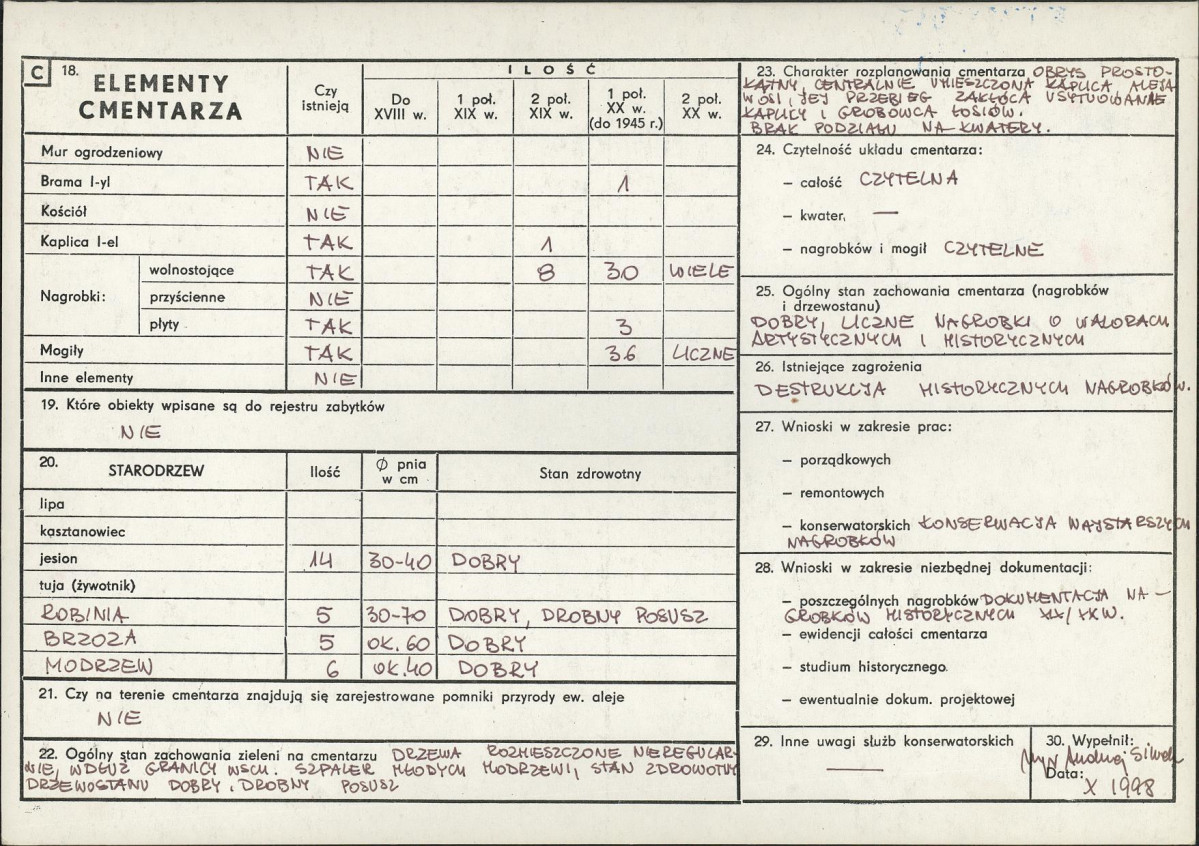 C 18. ELEMENTY CMENTARZA
Czy istnieją
ILOŚĆ
Do XVIII w.
1 poł. XIX w.
2 poł. XIX w.
1 poł. XX w. (do 1945 r.)
2 poł. XX w.
Mur ogrodzeniowy NIE
Brama I-yl TAK 1
Kościół NIE
Kaplica I-el TAK 1
Nagrobki:
wolnostojące TAK 8 30 WIELE
przyścienne NIE
płyty TAK 3
Mogiły TAK 36 LICZNE
Inne elementy NIE
19. Które obiekty wpisane są do rejestru zabytków
NIE
20. STARODRZEW Ilość Ø pnia w cm Stan zdrowotny
lipa
kasztanowiec
jesion 14 30-40 DOBRY
tuja (żywotnik)
ROBINIA 5 30-70 DOBRY, DROBNY POSUSZ
BRZOZA 5 OK. 60 DOBRY
MODRZEW 6 OK. 40 DOBRY
21. Czy na terenie cmentarza znajdują się zarejestrowane pomniki przyrody ew. aleje
NIE
22. Ogólny stan zachowania zieleni na cmentarzu DRZEWA ROZMIESZCZONE NIEREGULAR-
NIE, WDŁUŻ GRANICY WSCH. SZPALER MŁODYCH MODRZEWI, STAN ZDROWOTNY
DRZEWOSTANU DOBRY, DROBNY POSUSZ
23. Charakter rozplanowania cmentarza OBRYS PROSTO-
KĄTNY, CENTRALNIE UMIESZCZONA KAPLICA, ALEJA
W OSI, JEJ PRZEBIEG ZAKŁÓCA USYTUOWANIE
KAPLICY I GROBOWCA ŁOSIÓW.
BRAK PODZIAŁU NA KWATERY.
24. Czytelność układu cmentarza:
– całość CZYTELNA
– kwater, —
– nagrobków i mogił CZYTELNE
25. Ogólny stan zachowania cmentarza (nagrobków
i drzewostanu)
DOBRY, LICZNE NAGROBKI O WALORACH
ARTYSTYCZNYCH I HISTORYCZNYCH
26. Istniejące zagrożenia
DESTRUKCJA HISTORYCZNYCH NAGROBKÓW.
27. Wnioski w zakresie prac:
– porządkowych
– remontowych
– konserwatorskich KONSERWACJA NAJSTARSZYCH
NAGROBKÓW
28. Wnioski w zakresie niezbędnej dokumentacji:
– poszczególnych nagrobków DOKUMENTACJA NA-
GROBKÓW HISTORYCZNYCH XIX/XX W.
– ewidencji całości cmentarza
– studium historycznego
– ewentualnie dokum. projektowej
29. Inne uwagi służb konserwatorskich
—
30. Wypełnił:
mgr Andrzej Siwek
Data:
X 1998